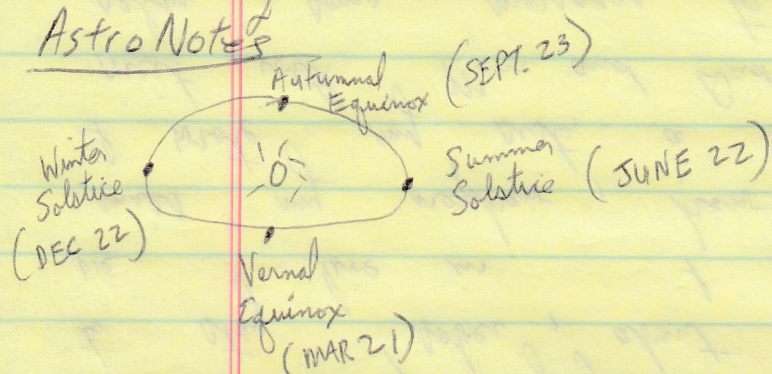 Astro Notes
Autumnal
Equinox
(SEPT. 23)
Winter
Solstice
(DEC 22)
Summer
Solstice
(JUNE 22)
Vernal
Equinox
(MAR 21)